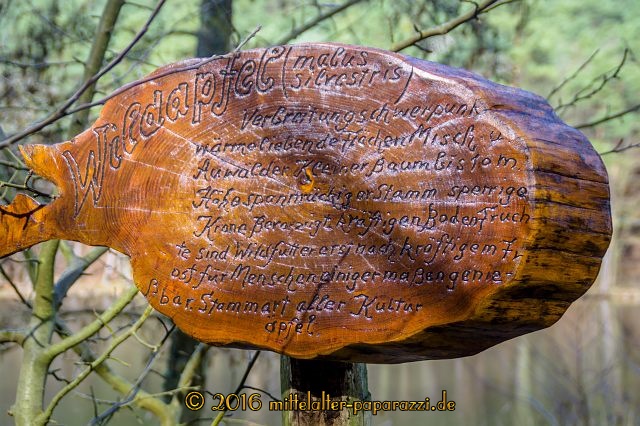 Wildapfel (malus silvestris)
Verbreitungsschwerpunk
wärmeliebende flachen Misch u
Auwälder Kleiner Baum bis 10 m
Höhe spannrückiger Stamm sperrige
Krone Bevorzigt kräftigen Boden Früch
te sind Wildfutter erst nach kräftigem Fr
ost für Menschen einigermaßen genie-
ßbar. Stammart aller Kultur
äpfel
© 2016 mittelalter-paparazzi.de